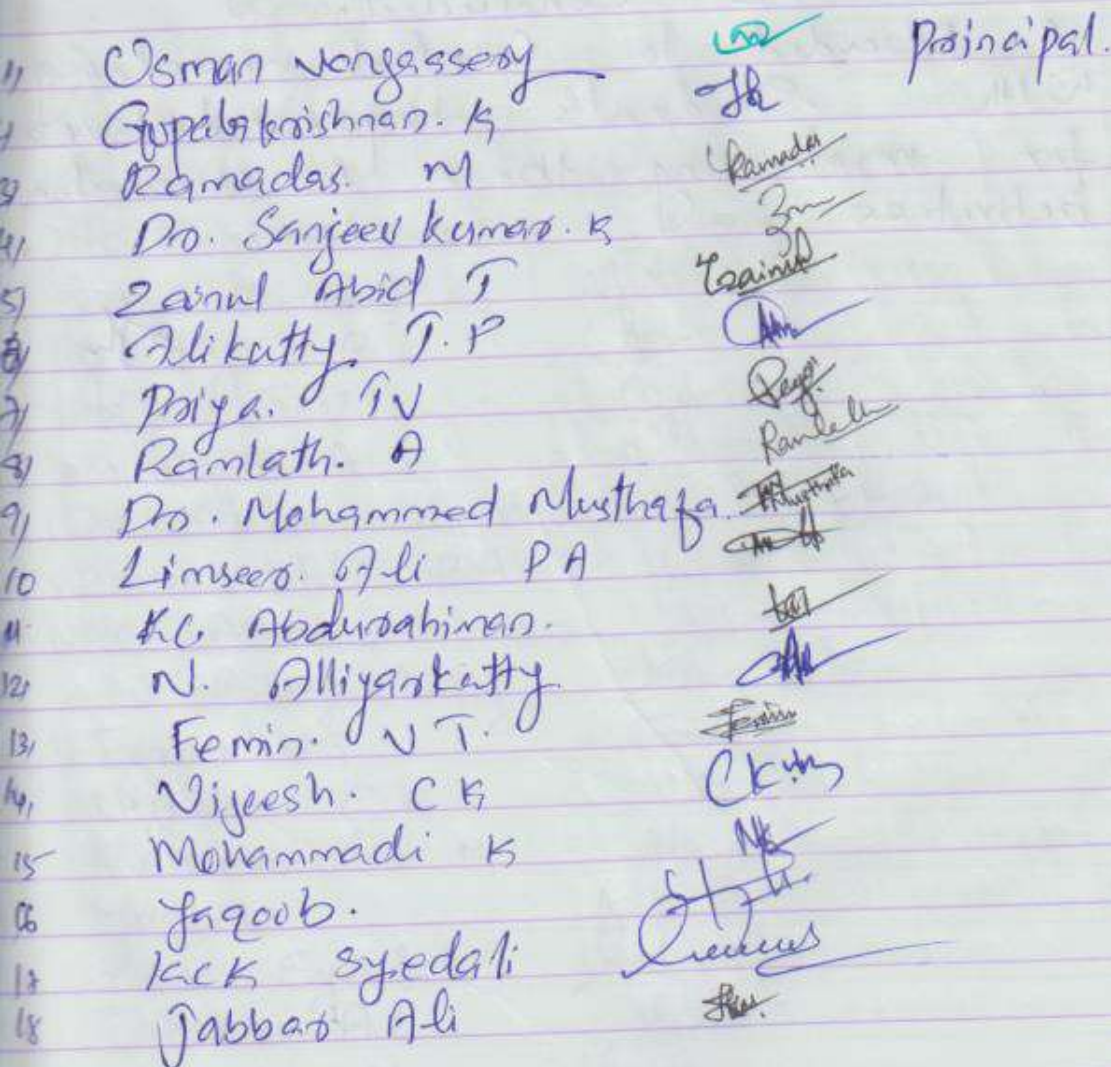 1, Osman Vengassery Principal.
Gopalakrishnan. K
3, Ramadas. M Ramadas
4, Dr. Sanjeev Kumar. K
5, Zainul Abid T Zainul
6, Alikutty T.P
7, Priya. TV
8, Ramlath. A Ramlath
9, Dr. Mohammed Musthafa. Musthafa
10 Limseer. Ali PA
11. K.C. Abdurahiman.
12, N. Alliyarkutty
13, Femin. V T. Femin
14, Vijeesh. C K
15 Mohammadi K
16 Yaqoob.
17 KCK Syedali
18 Jabbar Ali